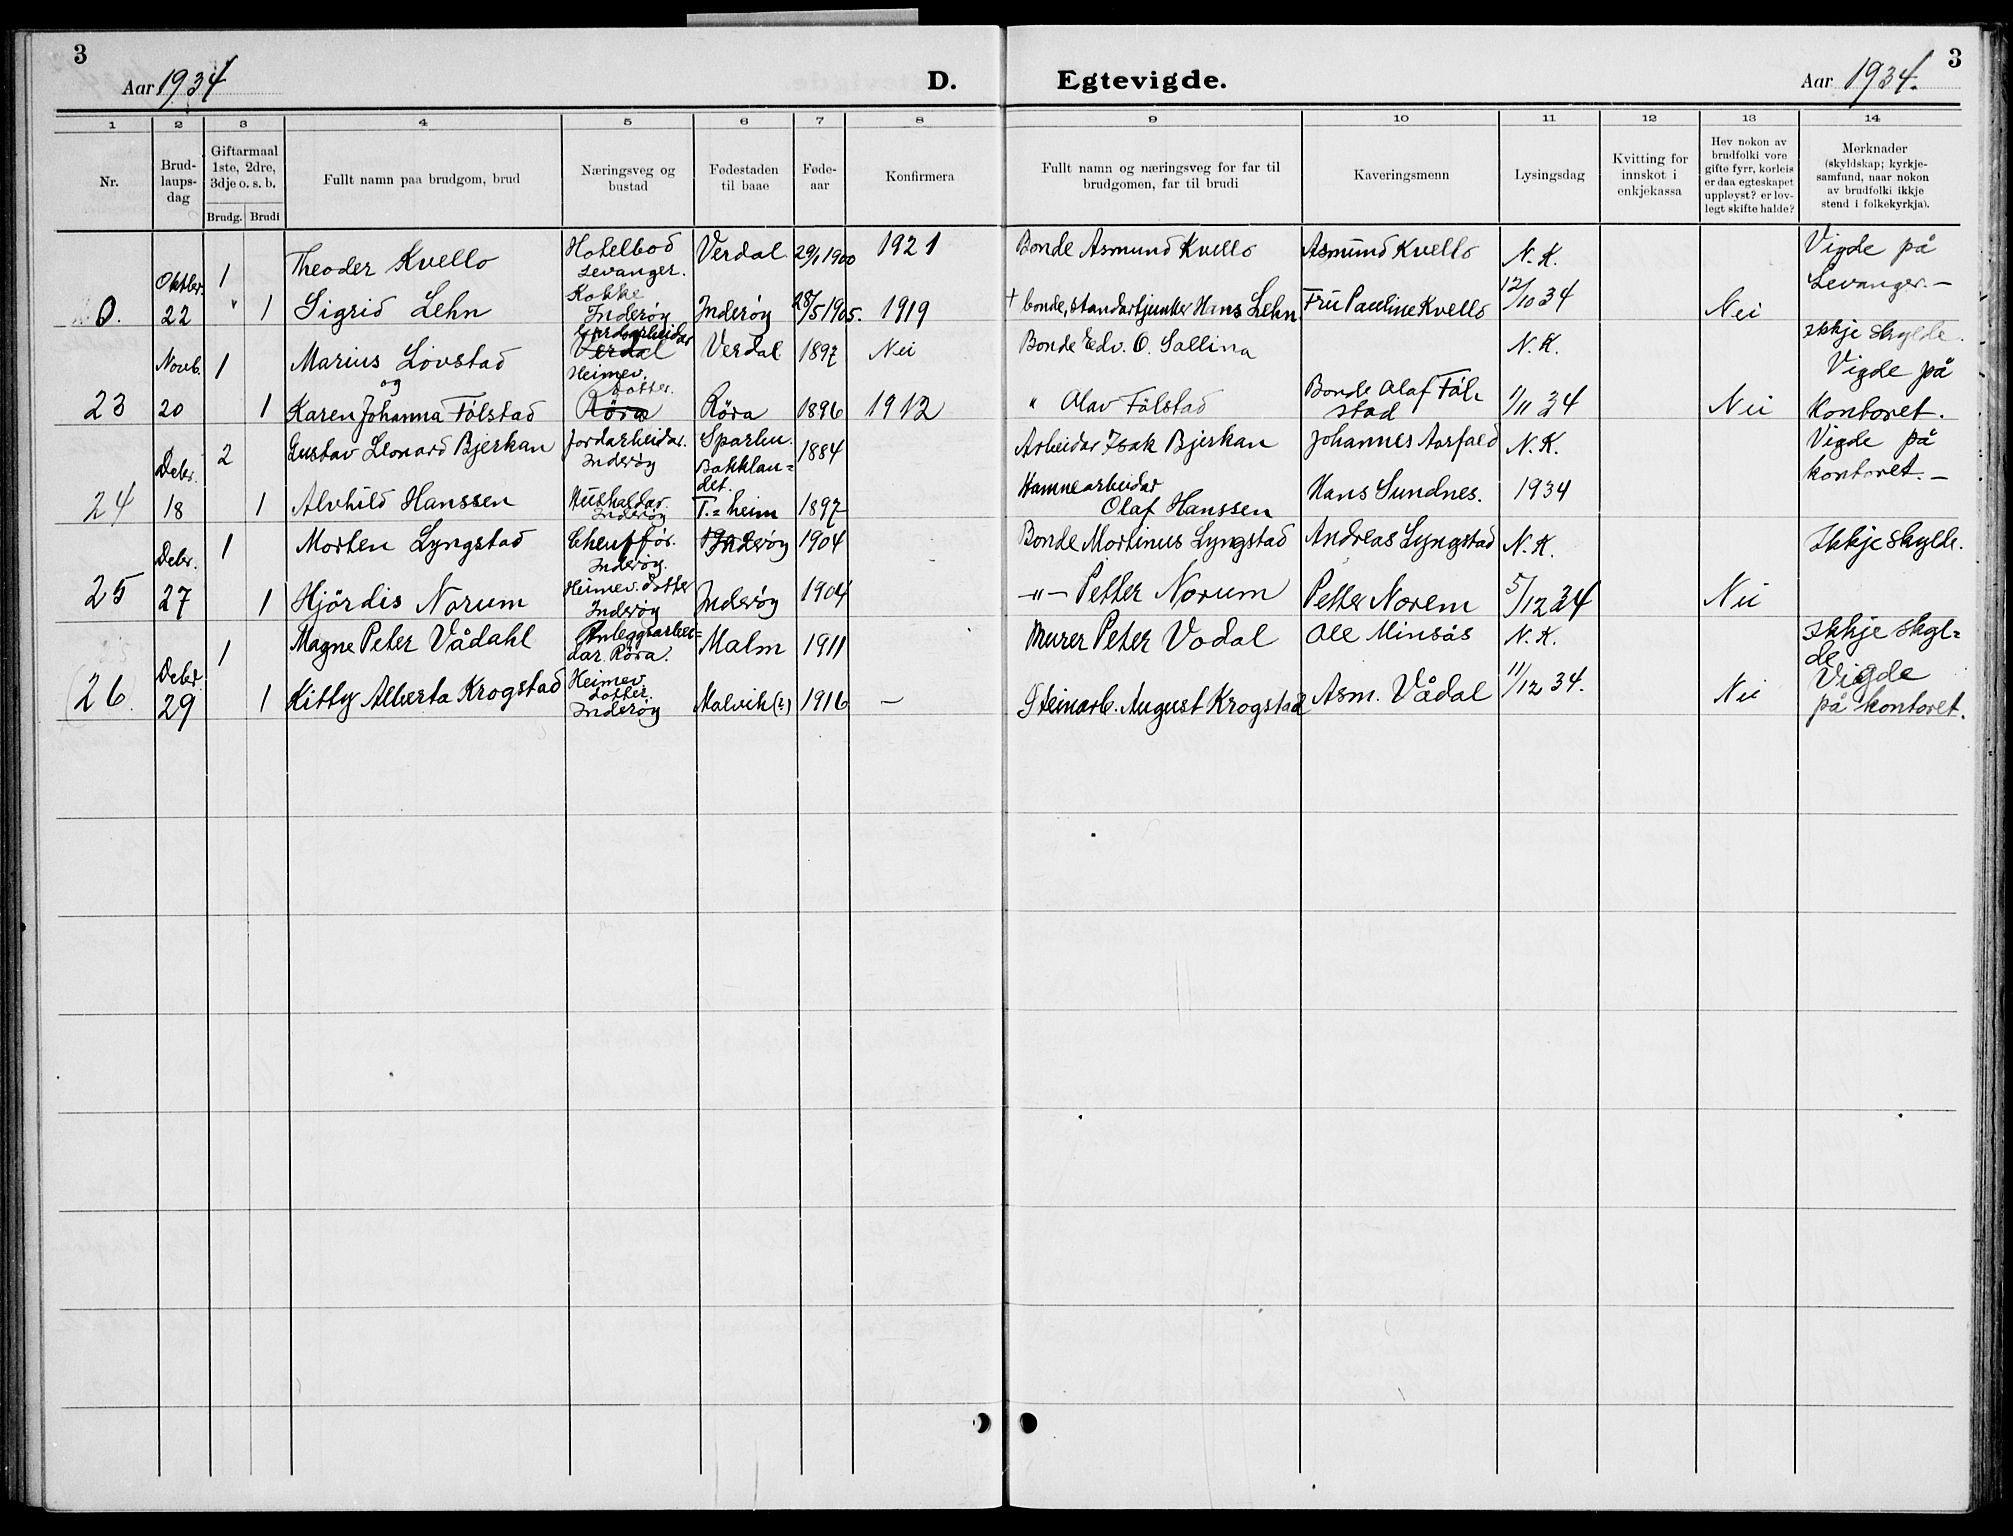 3
Aar 1934
D. Egtevigde.
Aar 1934.
3
1 2 3 4 5 6 7 8 9 10 11 12 13 14
Nr.
Brud-
laups-
dag
Giftarmaal
1ste, 2dre,
3dje o. s. b.
Brudg. Brudi
Fullt namn paa brudgom, brud
Næringsveg og
bustad
Fødestaden
til baae
Føde-
aar
Konfirmera
Fullt namn og næringsveg for far til
brudgomen, far til brudi
Kaveringsmenn
Lysingsdag
Kvitting for
innskot i
enkjekassa
Hev nokon av
brudfolki vore
gifte fyrr, korleis
er daa egteskapet
uppløyst? er lov-
legt skifte halde?
Merknader
(skyldskap; kyrkje-
samfund, naar nokon
av brudfolki ikkje
stend i folkekyrkja).
Oktbr. 1 Theoder Kvello
Hotelbod
Levanger.
Verdal 29/1 1900 1921
Bonde Asmund Kvello
Asmund Kvello
N. K.
Vigde på
Levanger. –
0. 22 " 1 Sigrid Lehn
Kokke
Inderöy
Inderöy 28/5 1905. 1919
+ bonde, standartjunker Hans Lehn
Fru Pauline Kvello
12/10 34
Nei
Novb. 1 Marius Lovstad
og
Gardsarbeider
Verdal
Verdal 1897 Nei
Bonde Edv. O. Sallina
N. K.
Ikkje skylde.
Vigde på
kontoret.
23 20 1 Karen Johanna Fölstad
Heimev.
dotter.
Röra
Röra 1896 1912
" Olav Fölstad
Bonde Olaf Föl-
stad
1/11 34
Nei
Debr. 2 Gustav Leonard Bjerkan
Jordarbeidar.
Inderöy
Sparbu. 1884
Arbeidar Isak Bjerkan
Johannes Aarfald
N. K.
Vigde på
kontoret. –
24 18 1 Alvhild Hanssen
Hushaldar.
Inderöy
Bakklan-
det.
T.=heim 1897
Hamnearbeidar
Olaf Hanssen
Hans Sundnes.
1934
Debr. 1 Morten Lyngstad
Cheufför.
Inderöy.
Inderöy 1904
Bonde Mortinus Lyngstad
Andreas Lyngstad
N. K.
Ikkje skylde.
25 27 1 Hjördis Norum
Heimev. dotter
Inderöy
Inderöy 1904
–"– Petter Norum
Petter Norem
5/12 34
Nei
Debr 1 Magne Peter Vådahl
Anleggsarbei-
dar. Röra.
Malm 1911
Murer Peter Vodal
Ole Minsås
N. K.
Ikkje skyl-
de
Vigde
på kontoret.
26 29 1 Kitty Alberta Krogstad
Heimev.
dotter.
Inderöy
Malvik (?) 1916 –
Steinarb. August Krogstad
Asm. Vådal
11/12 34.
Nei